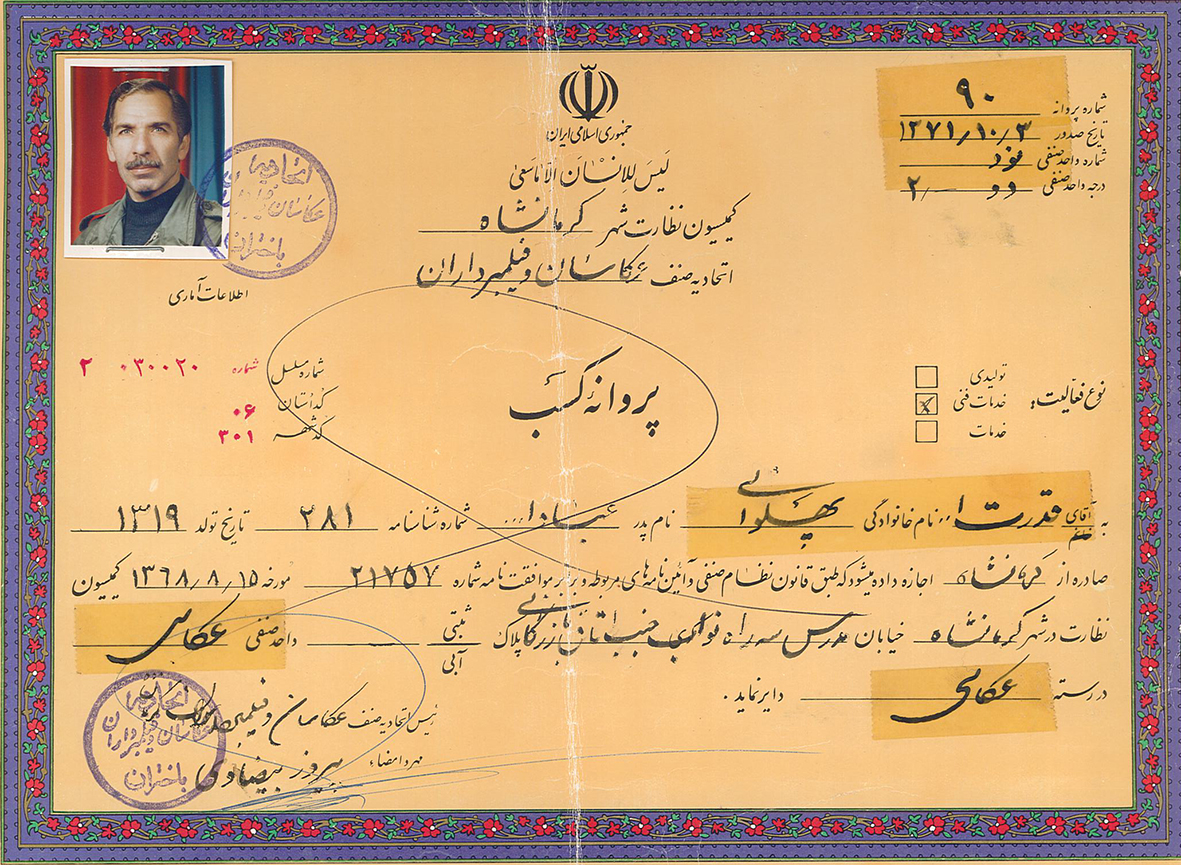 جمهوری اسلامی ایران
لَیسَ لِلاِنْسانِ اِلّا ماسَعیٰ
کمیسیون نظارت شهر کرمانشاه
اتحادیه صنف عکاسان و فیلمبرداران
شماره پروانه ۹۰
تاریخ صدور ۱۳۷۱/۱۰/۳
شماره واحد صنفی نود
درجه واحد صنفی دو ۲/
اتحادیه
عکاسان و فیلمبرداران
باختران
اطلاعات آماری
شماره مسلسل شماره ۰۳۰۰۲۰ ۲
کد استان ۰۶
کد شهر ۳۰۱
پروانهٔ کسب
نوع فعالیت:
تولیدی
خدمات فنی
خدمات
به آقای قدرت ا... نام خانوادگی پهلوانی نام پدر عبادا... شماره شناسنامه ۲۸۱ تاریخ تولد ۱۳۱۹
صادره از کرمانشاه اجازه داده میشود که طبق قانون نظام صنفی و آئین نامه های مربوطه و برابر موافقت نامه شماره ۲۱۷۵۷ مورخه ۱۳۶۸/۸/۱۵ کمیسیون
نظارت در شهر کرمانشاه خیابان مدرس سه راه نواب بازرگانی پلاک ثبتی آبی واحد صنفی عکاسی
در رسته عکاسی دایر نماید.
رئیس اتحادیه صنف عکاسان و فیلمبرداران
مهر و امضاء بهروز بیضاوی
اتحادیه
عکاسان و فیلمبرداران
باختران